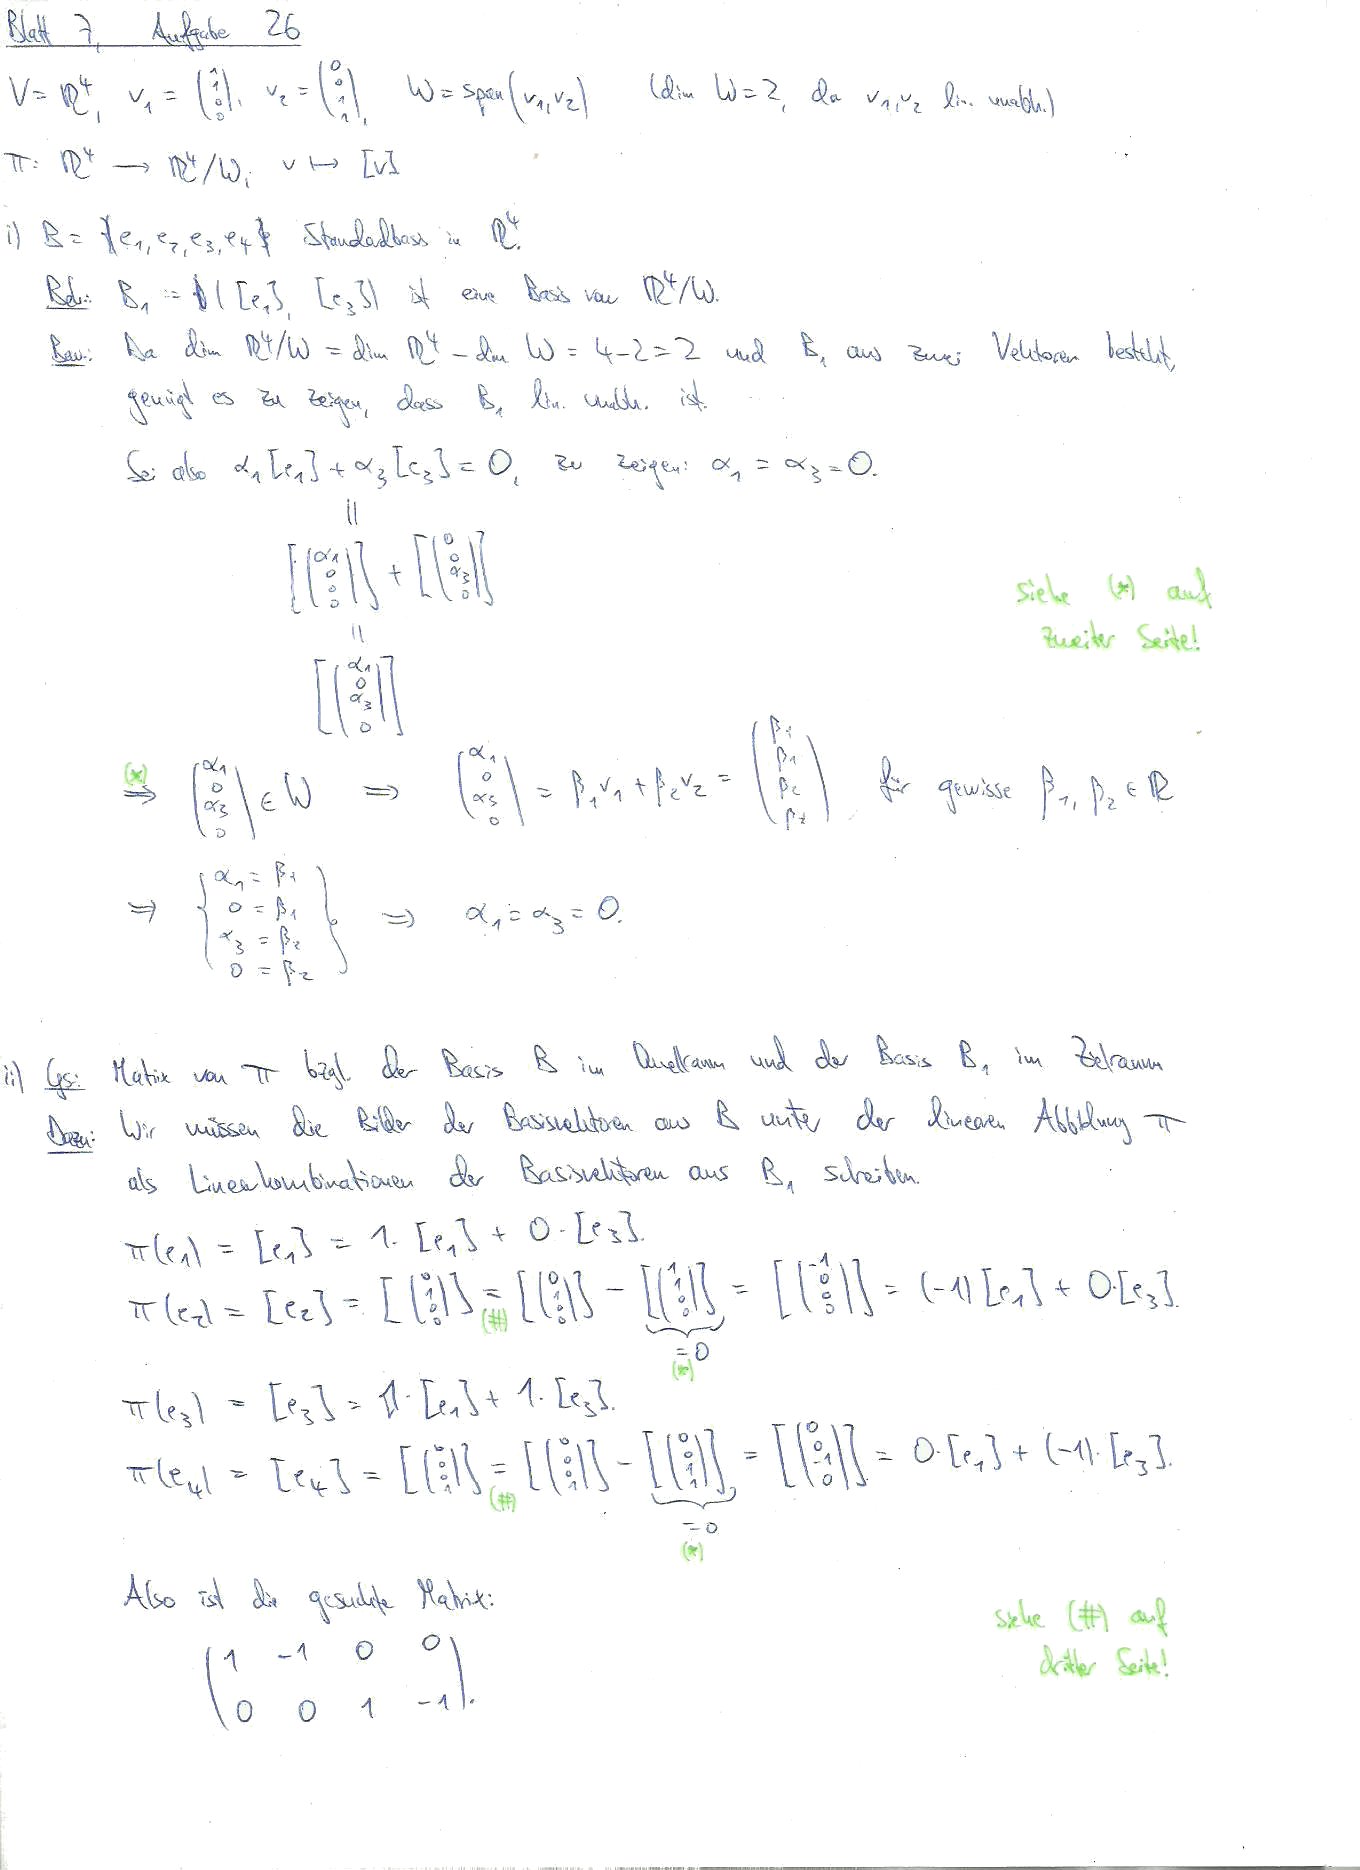 Blatt 7, Aufgabe 26
V = ℝ⁴, v₁ = (1 1 0 0), v₂ = (0 0 1 1), W = span(v₁,v₂) (dim W = 2, da v₁,v₂ lin. unabh.)
π: ℝ⁴ → ℝ⁴/W, v ↦ [v]
i) B = (e₁, e₂, e₃, e₄) Standardbasis in ℝ⁴.
Beh.: B₁ := ([e₁], [e₃]) ist eine Basis von ℝ⁴/W.
Bew.: Da dim ℝ⁴/W = dim ℝ⁴ - dim W = 4-2 = 2 und B₁ aus zwei Vektoren besteht,
genügt es zu zeigen, dass B₁ lin. unabh. ist.
Sei also α₁[e₁] + α₃[e₃] = 0, zu zeigen: α₁ = α₃ = 0.
=
[(α₁ 0 0 0)] + [(0 0 α₃ 0)]
siehe (*) auf
zweiter Seite!
=
[(α₁ 0 α₃ 0)]
(*) ⇒ (α₁ 0 α₃ 0) ∈ W ⇒ (α₁ 0 α₃ 0) = β₁v₁ + β₂v₂ = (β₁ β₁ β₂ β₂) für gewisse β₁, β₂ ∈ ℝ
⇒ { α₁ = β₁
0 = β₁
α₃ = β₂
0 = β₂ } ⇒ α₁ = α₃ = 0.
ii) Ges: Matrix von π bzgl. der Basis B im Quellraum und der Basis B₁ im Zielraum
Dazu: Wir müssen die Bilder der Basisvektoren aus B unter der linearen Abbildung π
als Linearkombinationen der Basisvektoren aus B₁ schreiben.
π(e₁) = [e₁] = 1·[e₁] + 0·[e₃].
π(e₂) = [e₂] = [(0 1 0 0)] = [(0 1 0 0)] - [(1 1 0 0)] = [(-1 0 0 0)] = (-1)[e₁] + 0·[e₃].
(#) = 0
(*)
π(e₃) = [e₃] = 1·[e₁] + 1·[e₃].
π(e₄) = [e₄] = [(0 0 0 1)] = [(0 0 0 1)] - [(0 0 1 1)] = [(0 0 -1 0)] = 0·[e₁] + (-1)·[e₃].
(#) = 0
(*)
Also ist die gesuchte Matrix:
siehe (#) auf
dritter Seite!
(1 -1 0 0
0 0 1 -1).